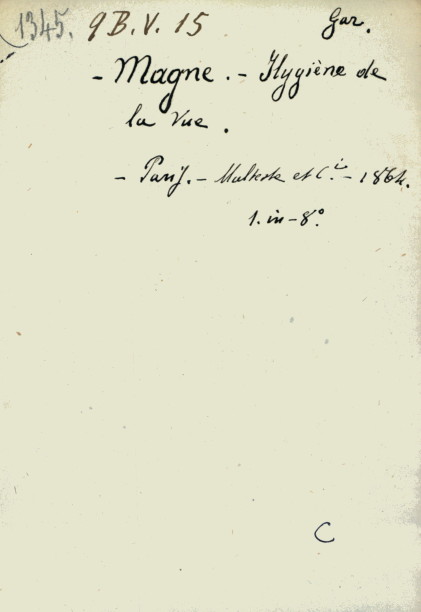 (1345. 9 B.V. 15 Gar.
- Magne. - Hygiène de
la Vue.
- Paris. - Malteste et C.ie - 1864.
1. in-8°.
C